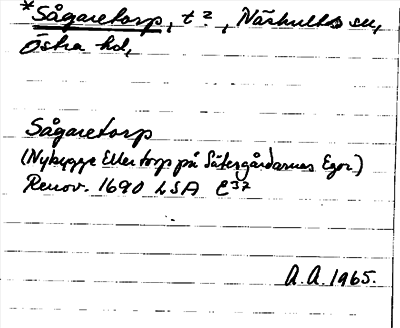 *Sågaretorp, t ?, Näshults sn,
Östra hd,
Sågaretorp
(Nybygge Eller torp på Sätesgårdarnas Egor)
Renov. 1690 LSA E37
A.A. 1965.